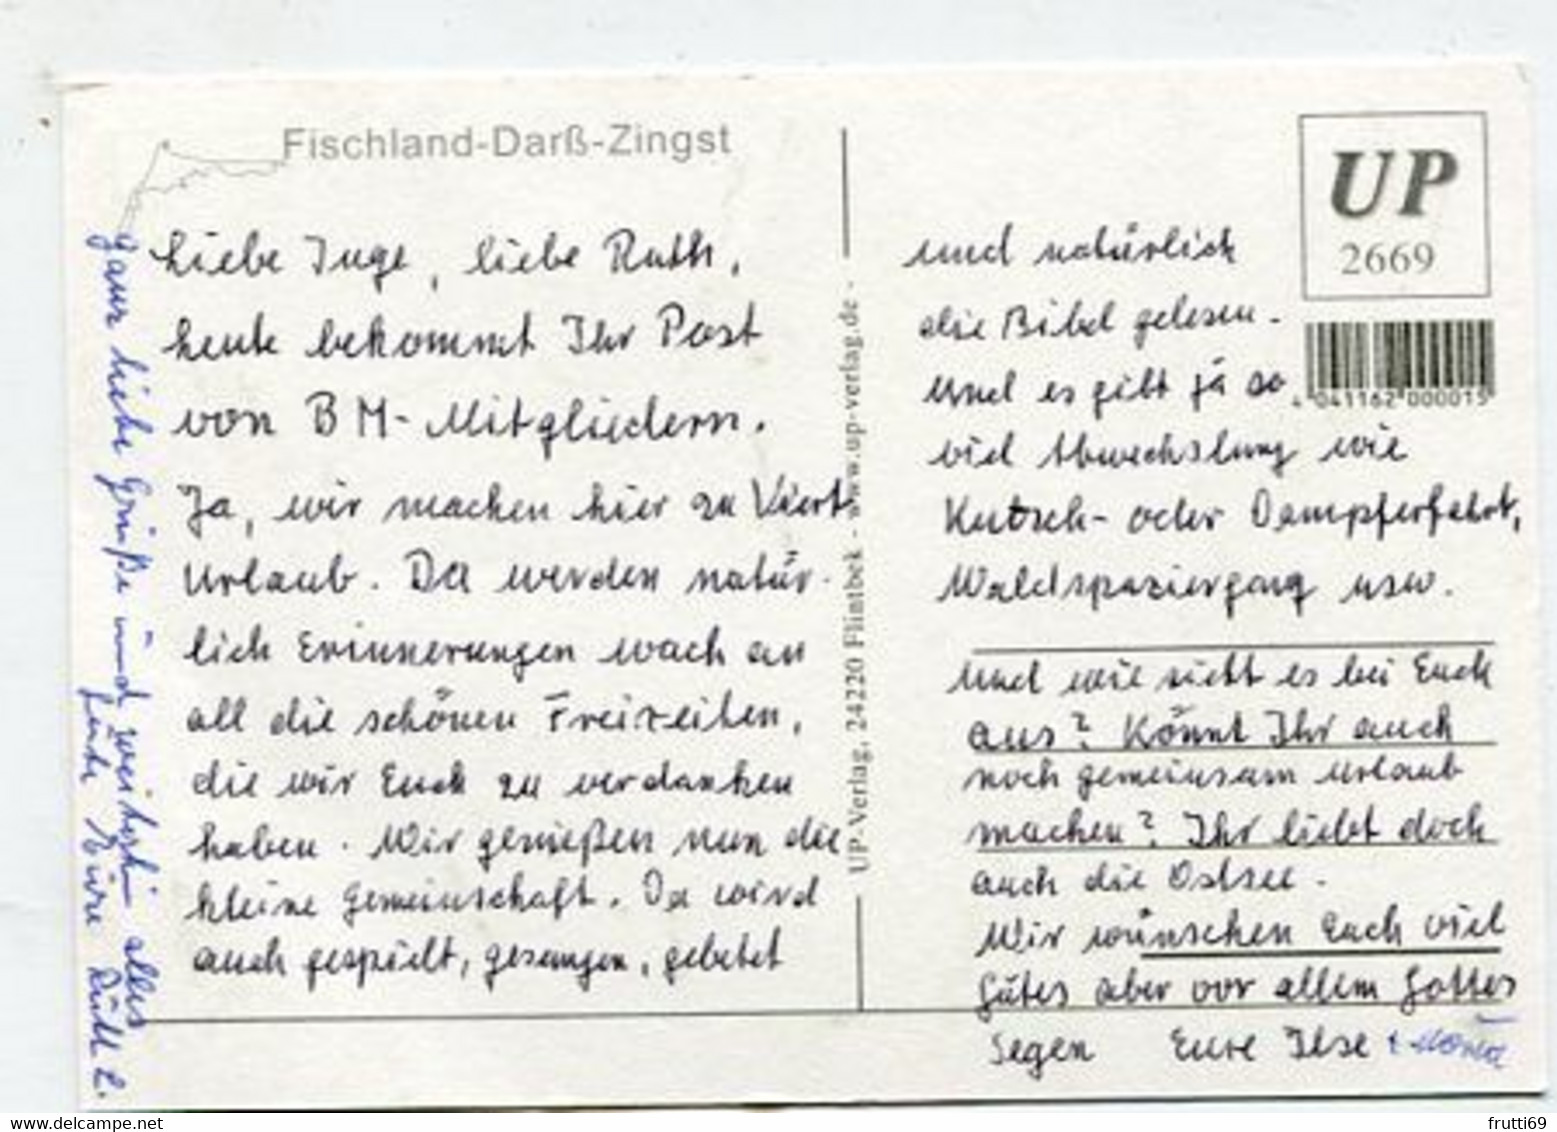 Fischland-Darß-Zingst
Liebe Inge, liebe Ruth,
heute bekommt Ihr Post
von BM-Mitgliedern.
Ja, wir machen hier zu Viert
Urlaub. Da werden natür-
lich Erinnerungen wach an
all die schönen Freizeiten,
die wir Euch zu verdanken
haben. Wir genießen nun die
kleine Gemeinschaft. Da wird
auch gespielt, gesungen, gebetet
und natürlich
die Bibel gelesen.
Und es gibt ja so
viel Abwechslung wie
Kutsch- oder Dampferfahrt,
Waldspaziergang usw.
Und wie sieht es bei Euch
aus? Könnt Ihr auch
noch gemeinsam Urlaub
machen? Ihr liebt doch
auch die Ostsee.
Wir wünschen Euch viel
Gutes aber vor allem Gottes
Segen Eure Ilse +
Ganz liebe Grüße und weiterhin alles
Gute Eure Ruth L.
UP-Verlag, 24220 Flintbek - www.up-verlag.de -
UP
2669
4 041162 000015
delcampe.net
frutti69